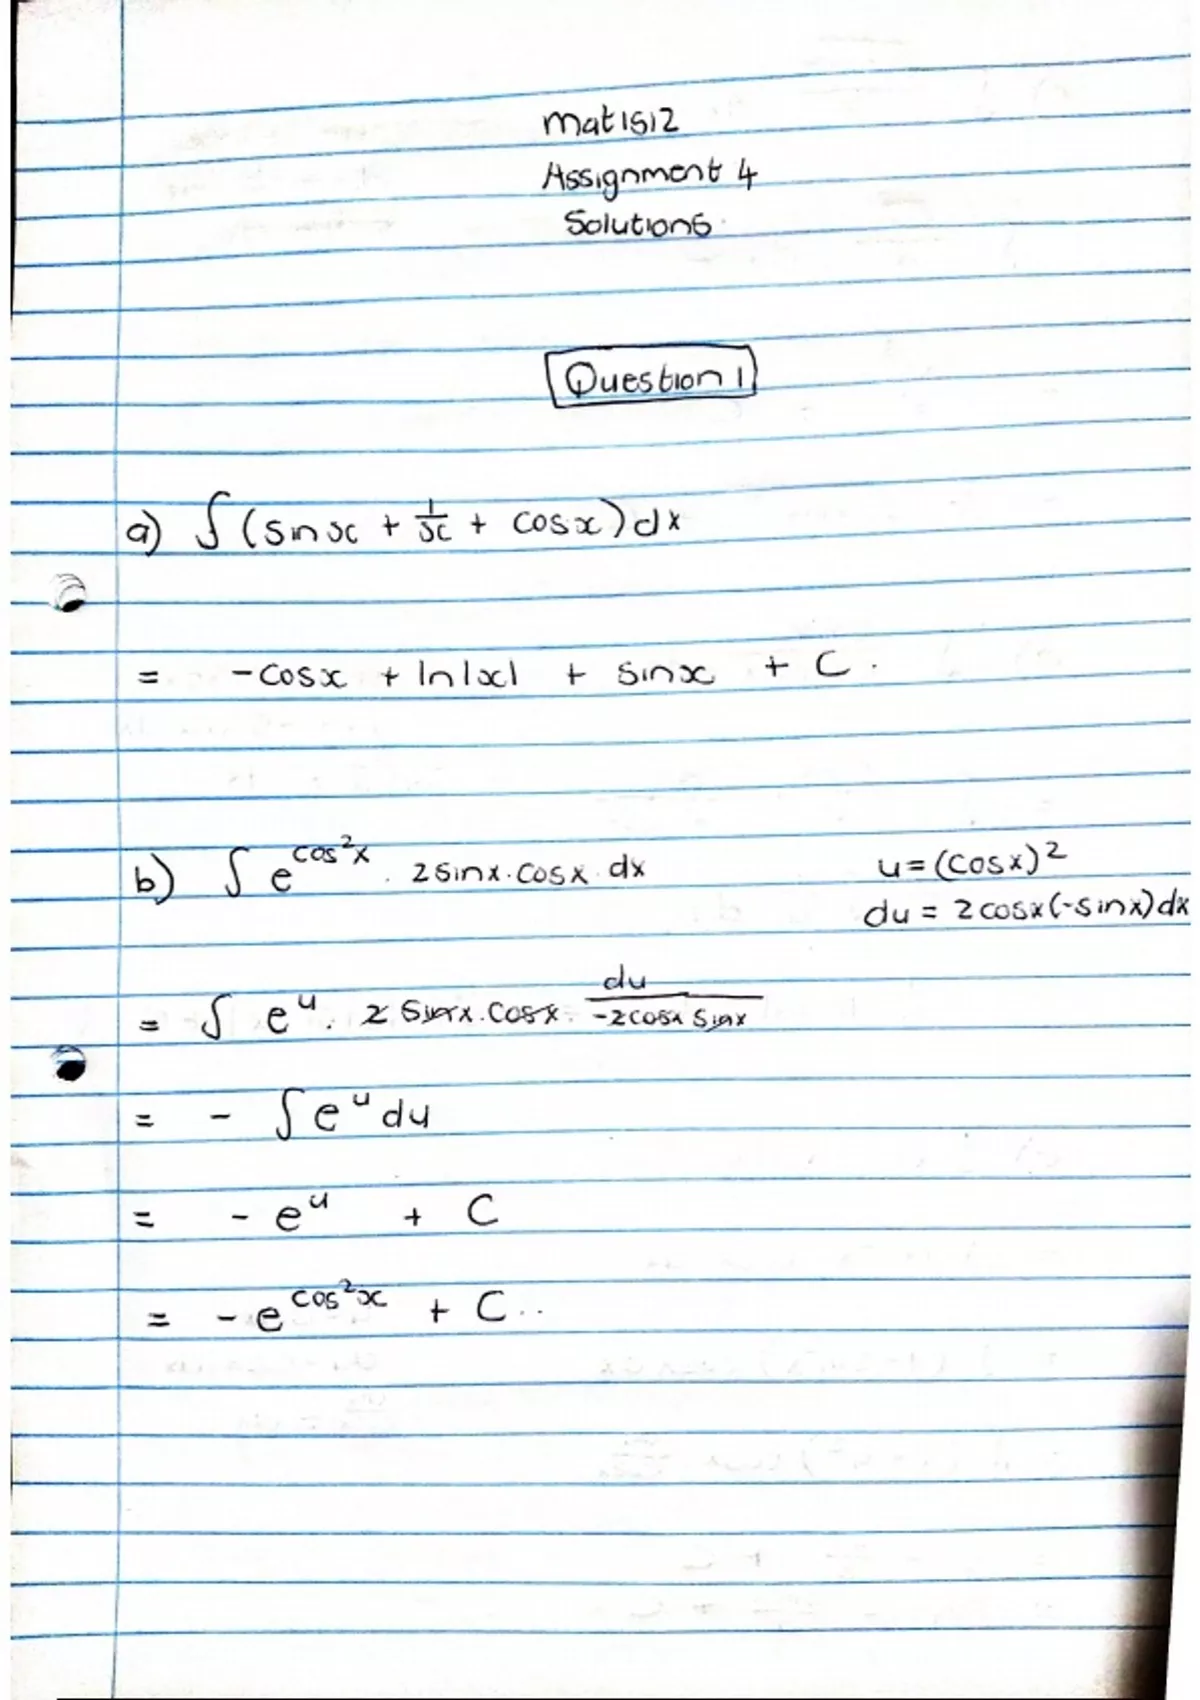 Mat1512
Assignment 4
Solutions.
Question 1
a) ∫(sinx + 1/x + cosx)dx
= -cosx + ln|x| + sinx + C.
b) ∫e^cos²x . 2sinx.cosx.dx u=(cosx)²
du = 2cosx(-sinx)dx
= ∫e^u. 2 sinx.cosx. du/-2cosx sinx
= - ∫e^u du
= - e^u + C
= - e^cos²x + C..